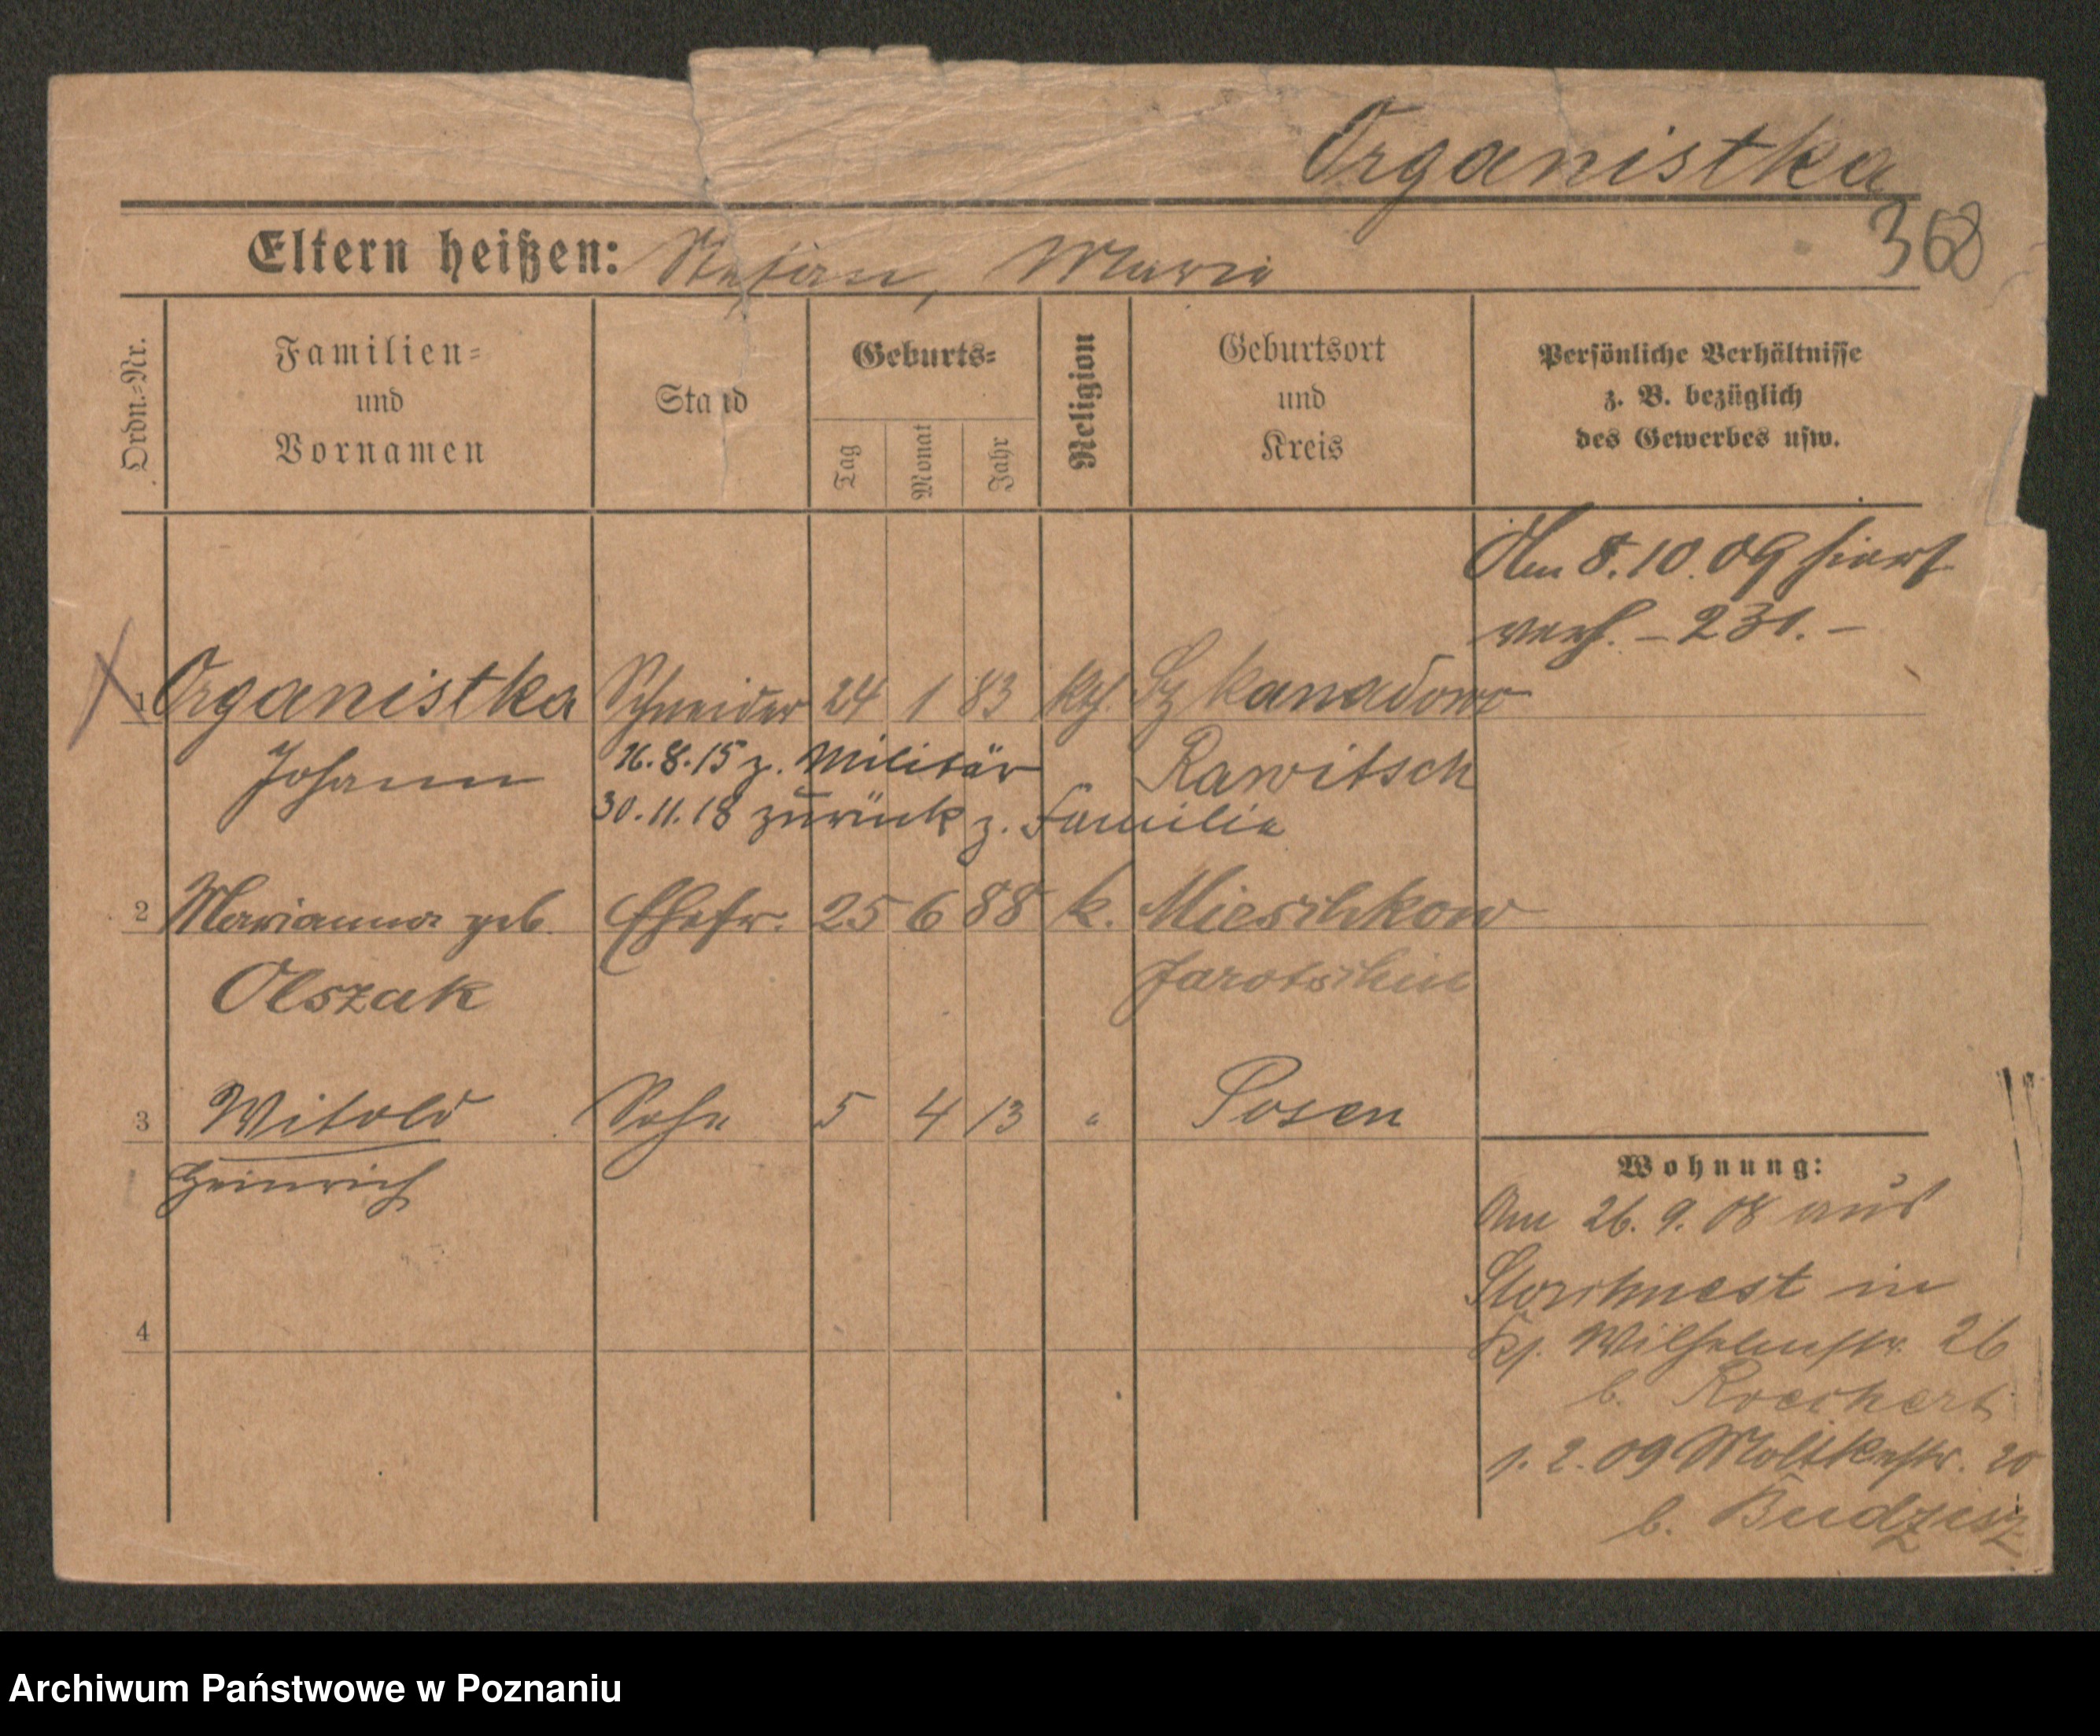 Organistka
368
Eltern heißen: Stefan, Maria
Ordn.-Nr.
Familien-
und
Vornamen
Stand
Geburts-
Tag
Monat
Jahr
Religion
Geburtsort
und
Kreis
Persönliche Verhältnisse
z. B. bezüglich
des Gewerbes usw.
Am 8.10.09 hiers.
verh. – 231. –
1 Organistka Schneider 24 1 83 kth. Szkaradowo
Johann Rawitsch
16.8.15 z. Militär
30.11.18 zurück z. Familie
2 Marianna geb. Ehefr. 25 6 88 k. Mieschkow
Olszak Jarotschin
3 Witold Sohn 5 4 13 " Posen
Heinrich
4
Wohnung:
Am 26. 9. 08 aus
Storchnest in
Wilhelmstr. 26
b.
1. 2. 09 Moltkestr. 20
b. Budzisz
Archiwum Państwowe w Poznaniu